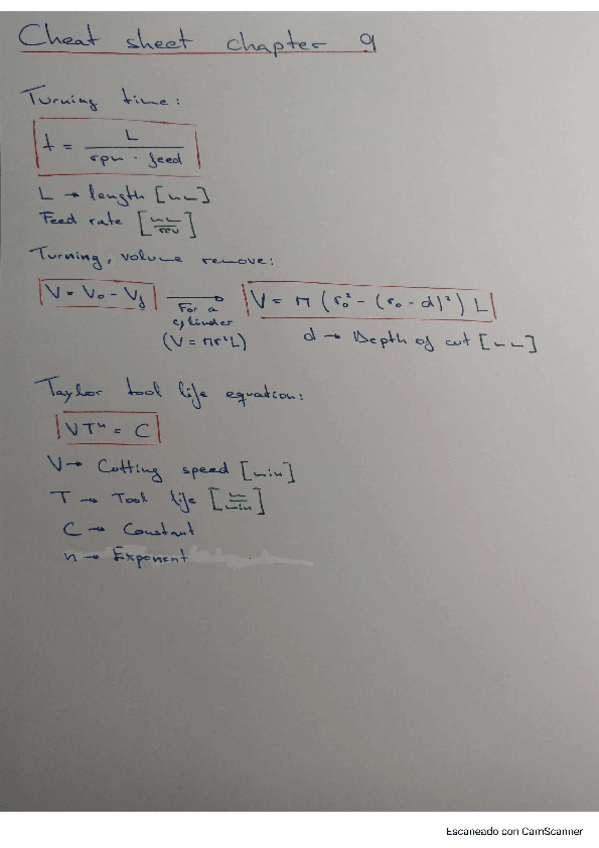 Cheat sheet chapter 9
Turning time:
t = L / rpm · feed
L → length [mm]
Feed rate [mm/rev]
Turning, volume remove:
V = V₀ - Vf → For a cylinder (V = πr²L) V = π (r₀² - (r₀ - d)²) L
d → Depth of cut [mm]
Taylor tool life equation:
VTⁿ = C
V → Cutting speed [min]
T → Tool life [m/min]
C → Constant
n → Exponent
Escaneado con CamScanner